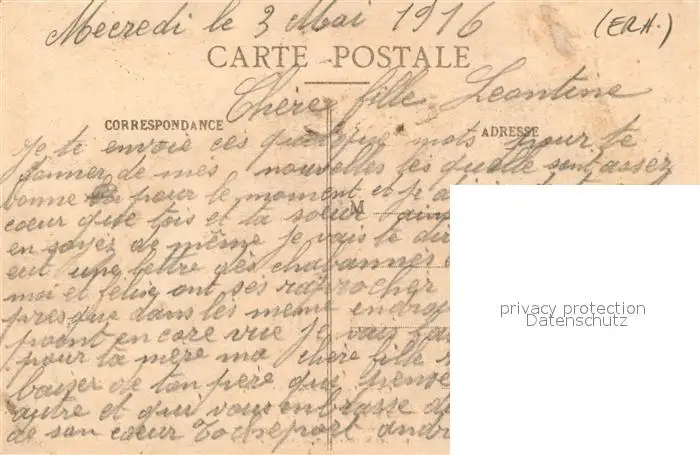 Mecredi le 3 Mai 1916 (ERH.)
CARTE POSTALE
Chère fille Leontine
CORRESPONDANCE
ADRESSE
Je te envoie ces quelque mots pour te
donner de mes nouvelles les quelle sont assez
bonne pour le moment et je
coeur que tois et ta soeur ain
M
en soyez de même je vais te dir
eut une lettre des chabannes
moi et felix ont ses raprocher
presque dans les meme endroi
point encore vue je vais
pour ta mère ma chère fille
baiser de ton père qui pense
autre et qui vous embrasse de
de son coeur Rocheport andr
privacy protection
Datenschutz